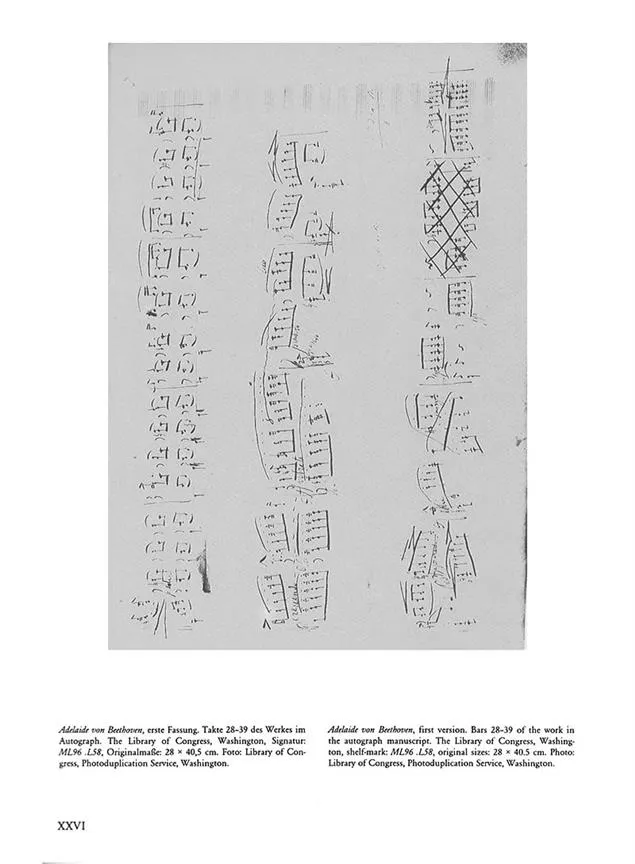 Adelaide von Beethoven, erste Fassung. Takte 28–39 des Werkes im
Autograph. The Library of Congress, Washington, Signatur:
ML96 .L58, Originalmaße: 28 × 40,5 cm. Foto: Library of Con-
gress, Photoduplication Service, Washington.
Adelaide von Beethoven, first version. Bars 28–39 of the work in
the autograph manuscript. The Library of Congress, Washing-
ton, shelf-mark: ML96 .L58, original sizes: 28 × 40.5 cm. Photo:
Library of Congress, Photoduplication Service, Washington.
XXVI